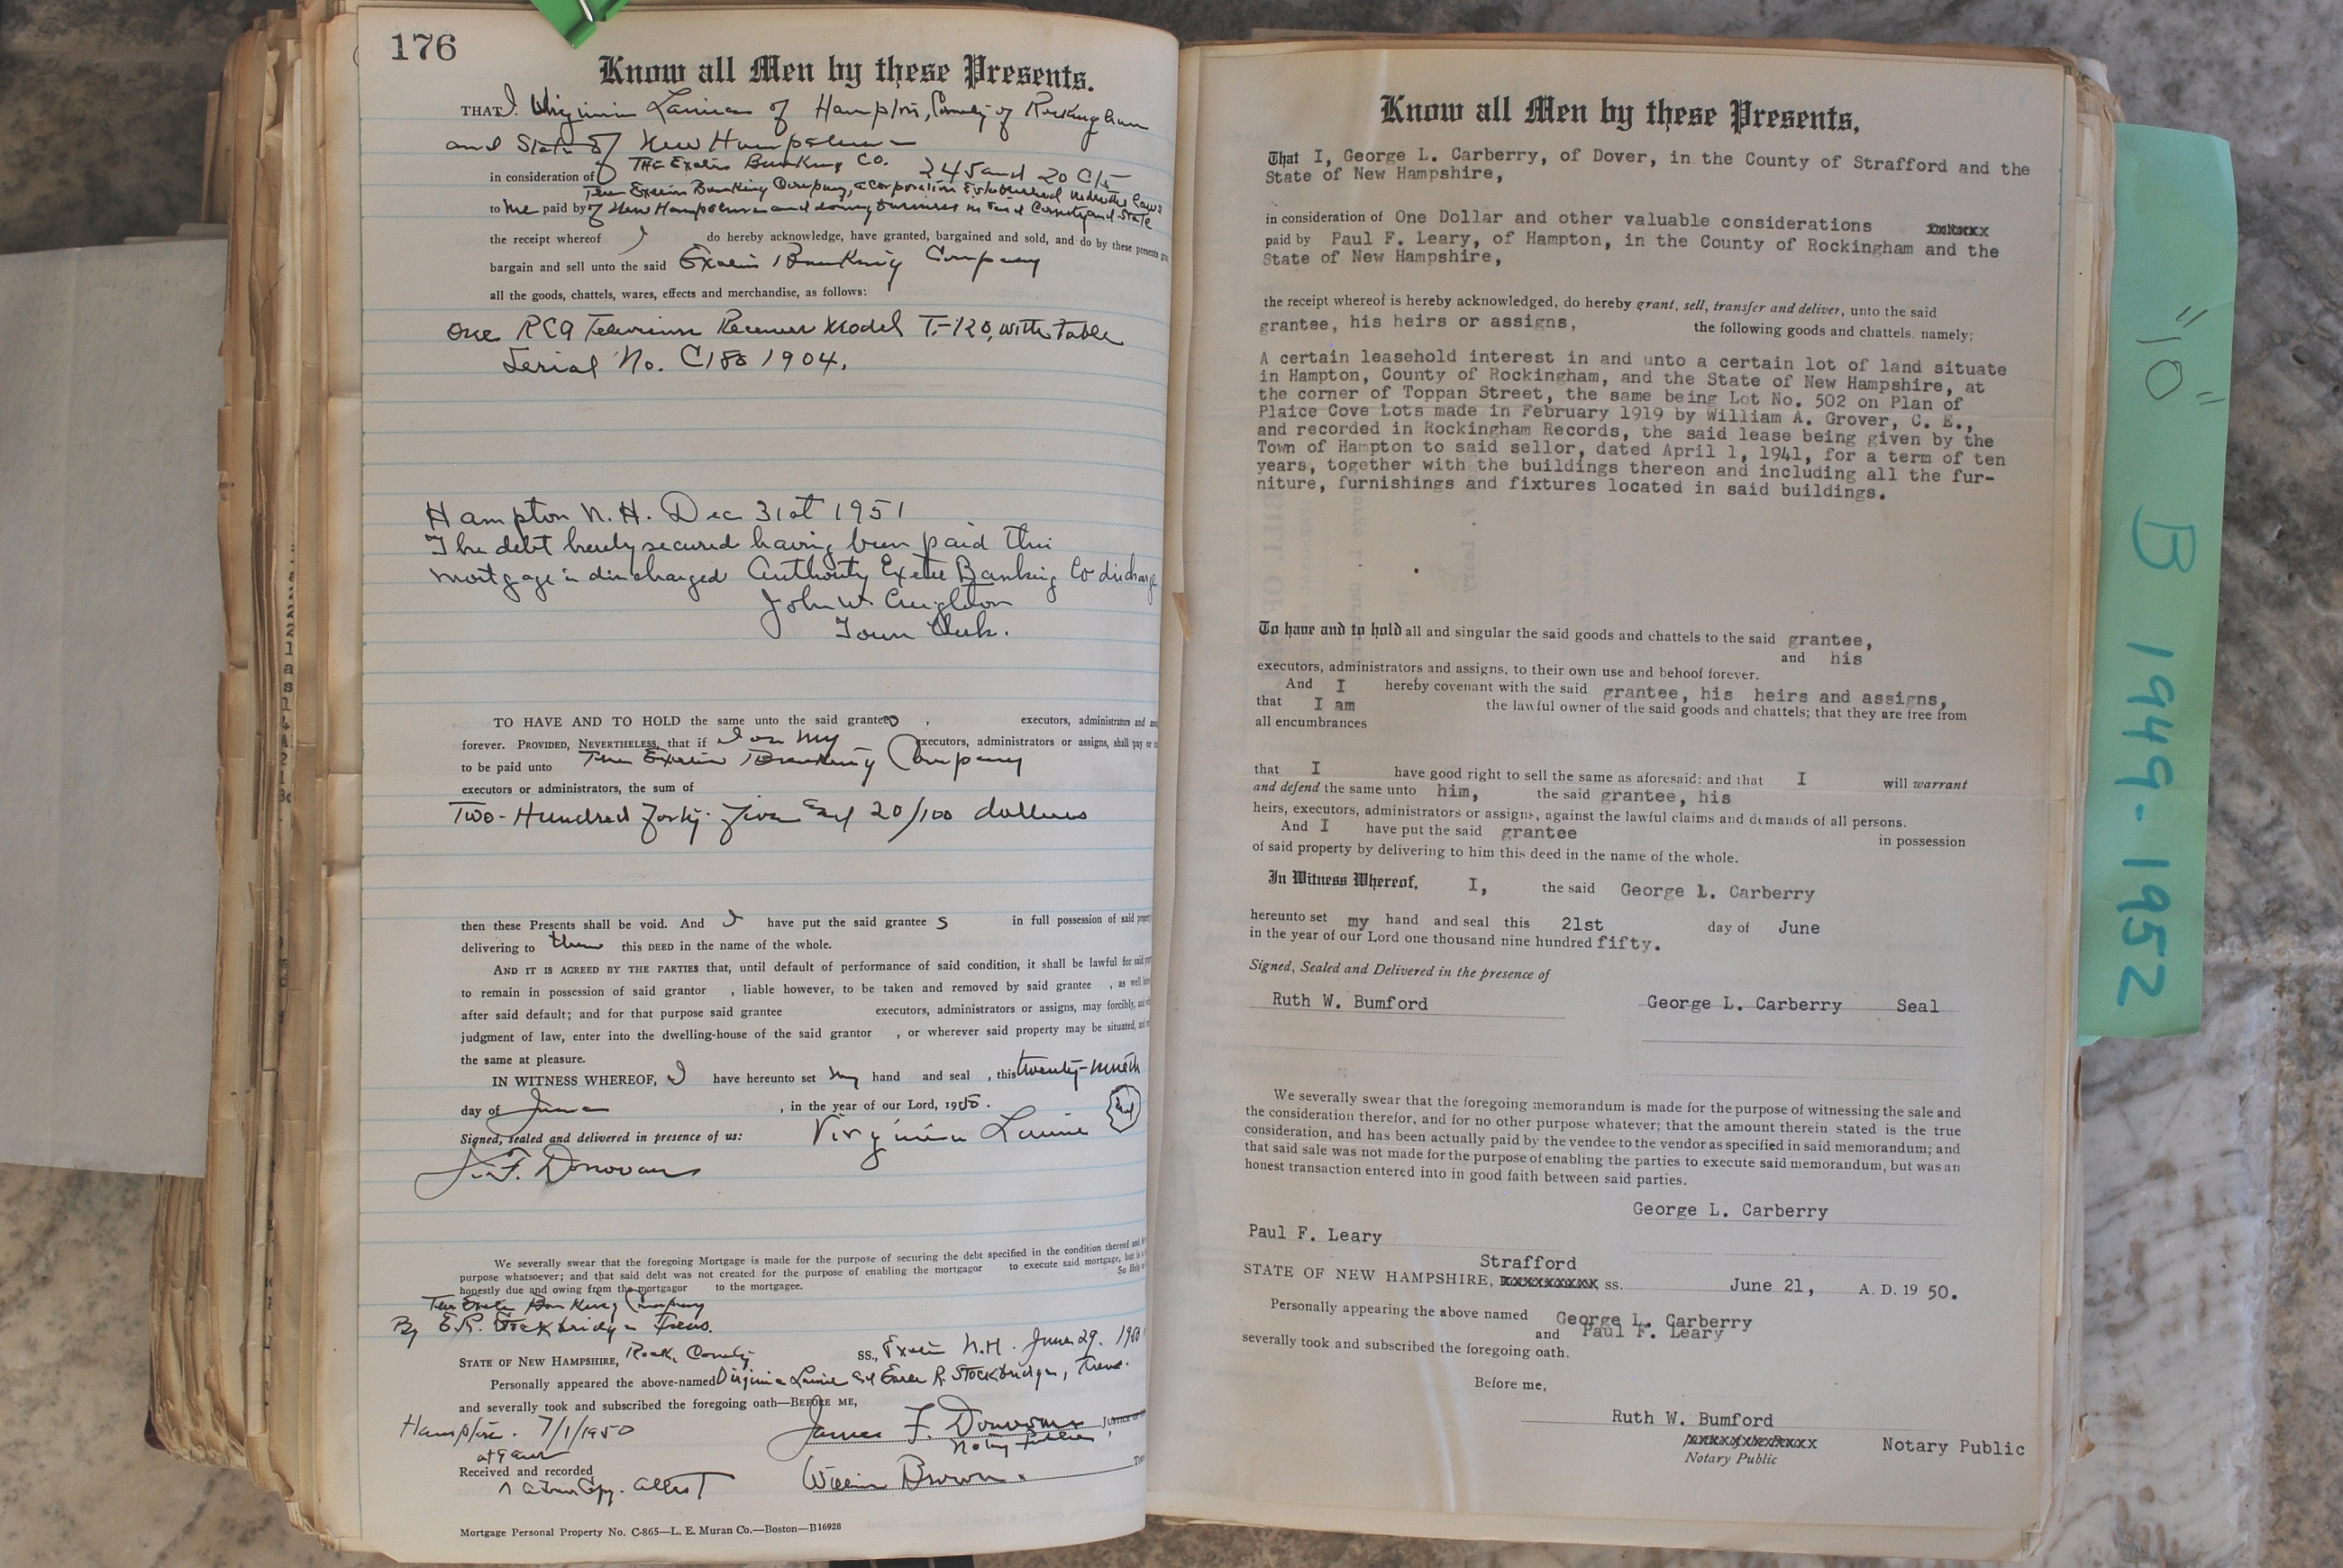 176
Know all Men by these Presents.
THAT I, Virginia of Hampton, County of Rockingham
and State of New Hampshire
in consideration of The Exeter Banking Co. 245 and 20 Cts
The Exeter Banking Company, a corporation established under the laws
to me paid by of New Hampshire and doing business in said County and State
the receipt whereof I do hereby acknowledge, have granted, bargained and sold, and do by these presents
bargain and sell unto the said Exeter Banking Company
all the goods, chattels, wares, effects and merchandise, as follows:
One RCA Television Receiver Model T-120, with table
Serial No. C180 1904.
Hampton N. H. Dec 31st 1951
The debt hereby secured having been paid this
mortgage is discharged Authority Exeter Banking Co discharge
John W. Creighton
Town Clerk.
TO HAVE AND TO HOLD the same unto the said grantee , executors, administrators and
forever. PROVIDED, NEVERTHELESS, that if I or my executors, administrators or assigns, shall pay or
to be paid unto The Exeter Banking Company
executors or administrators, the sum of
Two-Hundred forty-five and 20/100 dollars
then these Presents shall be void. And I have put the said grantee s in full possession of said
delivering to them this DEED in the name of the whole.
AND IT IS AGREED BY THE PARTIES that, until default of performance of said condition, it shall be lawful for said
to remain in possession of said grantor , liable however, to be taken and removed by said grantee , as well
after said default; and for that purpose said grantee executors, administrators or assigns, may forcibly,
judgment of law, enter into the dwelling-house of the said grantor , or wherever said property may be situated,
the same at pleasure.
IN WITNESS WHEREOF, I have hereunto set my hand and seal , this twenty-nineth
day of June , in the year of our Lord, 1950.
Signed, sealed and delivered in presence of us: Virginia Seal
J. F. Donovan
We severally swear that the foregoing Mortgage is made for the purpose of securing the debt specified in the condition thereof and
purpose whatsoever; and that said debt was not created for the purpose of enabling the mortgagor to execute said mortgage, but is
honestly due and owing from the mortgagor to the mortgagee. So Help
The Exeter Banking Company
By E. R. Stockbridge Treas.
STATE OF NEW HAMPSHIRE, Rock. County SS., Exeter N.H. June 29. 1950
Personally appeared the above-named Virginia and Earle R. Stockbridge, Treas.
and severally took and subscribed the foregoing oath—BEFORE ME,
Hampton. 7/1/1950 James F. Donovan Justice of
at 9 am Notary Public
Received and recorded
A true Copy. Attest William Brown.
Mortgage Personal Property No. C-865—L. E. Muran Co.—Boston—B16928
Know all Men by these Presents,
That I, George L. Carberry, of Dover, in the County of Strafford and the
State of New Hampshire,
in consideration of One Dollar and other valuable considerations
paid by Paul F. Leary, of Hampton, in the County of Rockingham and the
State of New Hampshire,
the receipt whereof is hereby acknowledged, do hereby grant, sell, transfer and deliver, unto the said
grantee, his heirs or assigns, the following goods and chattels, namely;
A certain leasehold interest in and unto a certain lot of land situate
in Hampton, County of Rockingham, and the State of New Hampshire, at
the corner of Toppan Street, the same being Lot No. 502 on Plan of
Plaice Cove Lots made in February 1919 by William A. Grover, C. E.,
and recorded in Rockingham Records, the said lease being given by the
Town of Hampton to said sellor, dated April 1, 1941, for a term of ten
years, together with the buildings thereon and including all the fur-
niture, furnishings and fixtures located in said buildings.
To have and to hold all and singular the said goods and chattels to the said grantee,
and his
executors, administrators and assigns, to their own use and behoof forever.
And I hereby covenant with the said grantee, his heirs and assigns,
that I am the lawful owner of the said goods and chattels; that they are free from
all encumbrances
that I have good right to sell the same as aforesaid; and that I will warrant
and defend the same unto him, the said grantee, his
heirs, executors, administrators or assigns, against the lawful claims and demands of all persons.
And I have put the said grantee in possession
of said property by delivering to him this deed in the name of the whole.
In Witness Whereof, I, the said George L. Carberry
hereunto set my hand and seal this 21st day of June
in the year of our Lord one thousand nine hundred fifty.
Signed, Sealed and Delivered in the presence of
Ruth W. Bumford George L. Carberry Seal
We severally swear that the foregoing memorandum is made for the purpose of witnessing the sale and
the consideration therefor, and for no other purpose whatever; that the amount therein stated is the true
consideration, and has been actually paid by the vendee to the vendor as specified in said memorandum; and
that said sale was not made for the purpose of enabling the parties to execute said memorandum, but was an
honest transaction entered into in good faith between said parties.
George L. Carberry
Paul F. Leary
Strafford
STATE OF NEW HAMPSHIRE, xxxxxxxxxx ss. June 21, A. D. 19 50.
Personally appearing the above named George L. Carberry
and Paul F. Leary
severally took and subscribed the foregoing oath.
Before me,
Ruth W. Bumford
Notary Public
Notary Public
"10" B 1949-1952